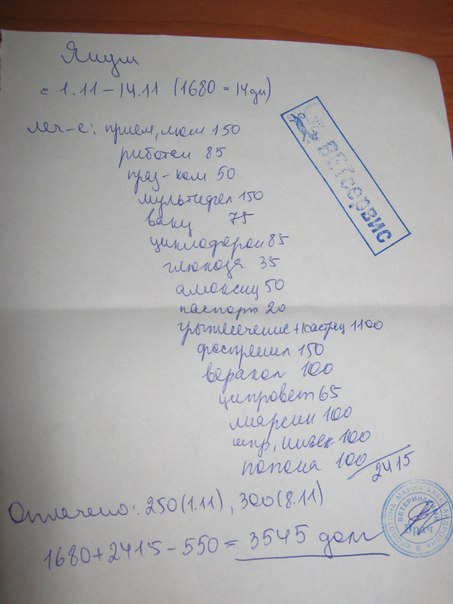 Яшум
с 1.11-14.11 (1680 = 14дн)
леч-е: прием, люм 150
риботан 85
праз-ком 50
мультифел 150
вакц 75
циклоферон 85
глюкоза 35
амоксиц 50
паспорт 20
грыжесечение + кастрац 1100
фоспренил 150
веракол 100
ципровет 65
лиарсин 100
шпр, инъек 100
попона 100
2415
ВЕТСЕРВИС
Оплачено: 250 (1.11), 300 (8.11)
1680+2415-550= 3545 долг
Врач